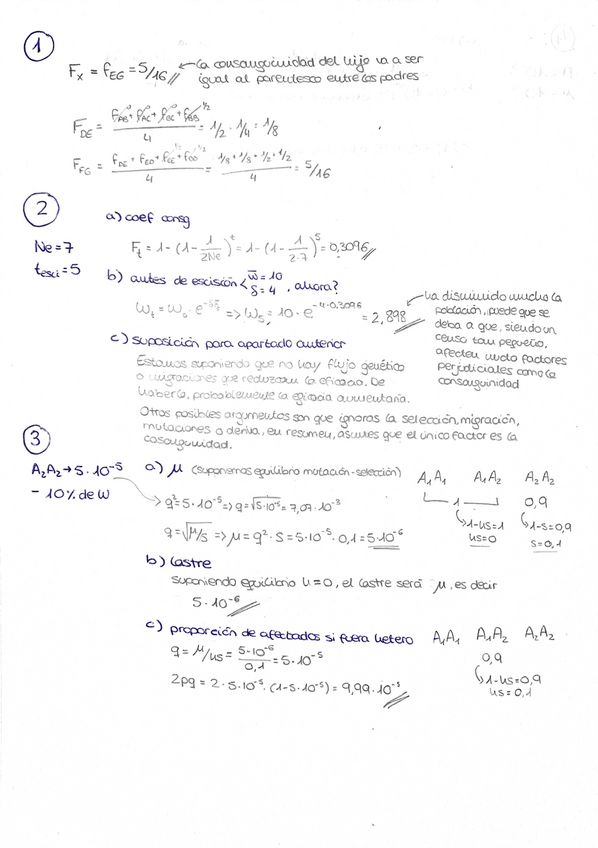 1
Fx = fEG = 5/16 ← La consanguinidad del hijo va a ser
igual al parentesco entre los padres
FDE = (fAB⁰ + fAC⁰ + fBC⁰ + fBB^1/2) / 4 = 1/2 · 1/4 = 1/8
FFG = (fDE + fED + fEE^1/2 + fDD^1/2) / 4 = (1/8 + 1/8 + 1/2 + 1/2) / 4 = 5/16
2
a) coef consg
Ne = 7
Ft = 1 - (1 - 1/2Ne)^t = 1 - (1 - 1/2·7)^5 = 0,3096
tesci = 5
b) antes de escisión < w̄ = 10
δ = 4, ahora?
Wt = W₀ · e^-δFt => W₅ = 10 · e^-4·0,3096 = 2,898
← Ha disminuido mucho la
población, puede que se
deba a que, siendo un
censo tan pequeño,
afecten mucho factores
perjudiciales como la
consanguinidad
c) suposición para apartado anterior
Estamos suponiendo que no hay flujo genético
o migraciones que reduzcan la eficacia. De
haberla, probablemente la eficacia aumentaría.
Otros posibles argumentos son que ignoras la selección, migración,
mutaciones o deriva, en resumen, asumes que el único factor es la
cosanguinidad.
3
A₂A₂ → 5·10⁻⁵
- 10% de W
a) μ (suponemos equilibrio mutación-selección)
A₁A₁ A₁A₂ A₂A₂
1 0,9
→ q² = 5·10⁻⁵ => q = √5·10⁻⁵ = 7,07·10⁻³
↳ 1-hs=1 ↳ 1-s=0,9
hs=0 s=0,1
q = √μ/s => μ = q² · s = 5·10⁻⁵ · 0,1 = 5·10⁻⁶
b) Lastre
suponiendo equilibrio h=0, el lastre será μ, es decir
5·10⁻⁶
c) proporción de afectados si fuera hetero A₁A₁ A₁A₂ A₂A₂
q = μ/hs = 5·10⁻⁶/0,1 = 5·10⁻⁵
0,9
↳ 1-hs=0,9
hs=0,1
2pq = 2 · 5·10⁻⁵ · (1-5·10⁻⁵) = 9,99·10⁻⁵